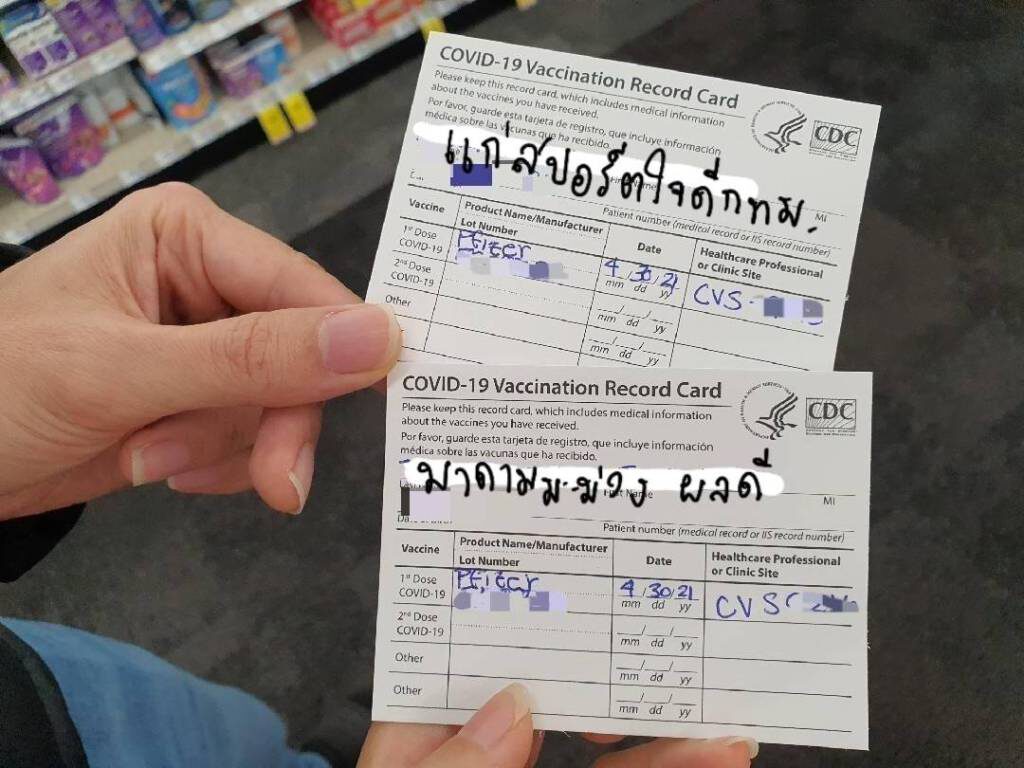 COVID-19 Vaccination Record Card
Please keep this record card, which includes medical information
about the vaccines you have received.
Por favor, guarde esta tarjeta de registro, que incluye información
médica sobre las vacunas que ha recibido.
CDC
แก่สปอร์ตใจดีกทม.
MI
Patient number (medical record or IIS record number)
Vaccine
Product Name/Manufacturer
Lot Number
Date
Healthcare Professional
or Clinic Site
1st Dose
COVID-19
Pfizer
4/30/21
mm dd yy
CVS
2nd Dose
COVID-19
mm dd yy
Other
mm dd yy
COVID-19 Vaccination Record Card
Please keep this record card, which includes medical information
about the vaccines you have received.
Por favor, guarde esta tarjeta de registro, que incluye información
médica sobre las vacunas que ha recibido.
CDC
มาดามมะม่วง ผลดี
First Name
MI
Patient number (medical record or IIS record number)
Vaccine
Product Name/Manufacturer
Lot Number
Date
Healthcare Professional
or Clinic Site
1st Dose
COVID-19
Pfizer
4/30/21
mm dd yy
CVS
2nd Dose
COVID-19
mm dd yy
Other
mm dd yy
Other
mm dd yy